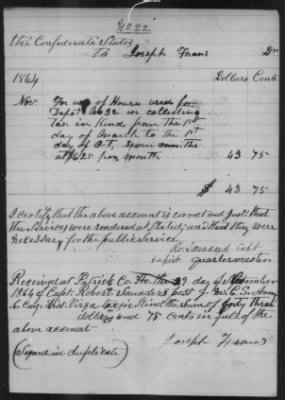 No 22
the Confederate States
To Joseph Frans Dr
1864 Dollars Cents
Nov. For use of House used for
Depot No 32 in collecting
tax in Kind from the 1st
day of March to the 1st
day of Oct, seven months
at $6.25 per month 43 75
$ 43 75
I certify that the above account is correct and just; that
the services were rendered as stated; and that they were
necessary for the public service.
Ro. Saunders Capt
& post quartermaster
Received at Patrick Co. Ho. the 29 day of November
1864 of Capt. Robert Saunders post
the Sum of forty three
dollars and 75 Cents in full of the
above account
Joseph Frans
(Signed in duplicate)